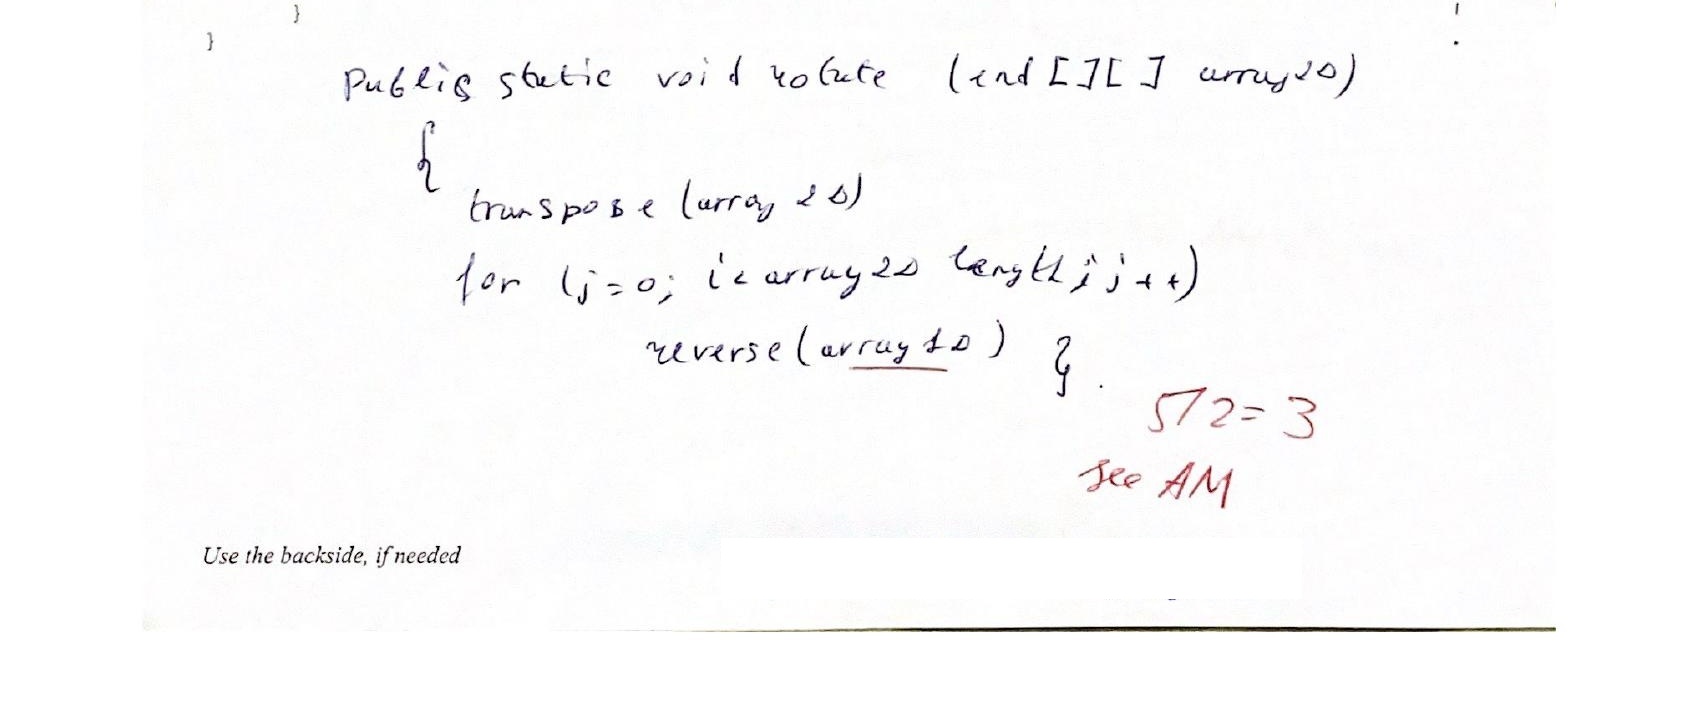 }
}
public static void rotate (int [][] array2D)
{
transpose (array 2D)
for (j=0; i< array2D length; j++)
reverse (array1D) }.
5/2=3
see AM
Use the backside, if needed